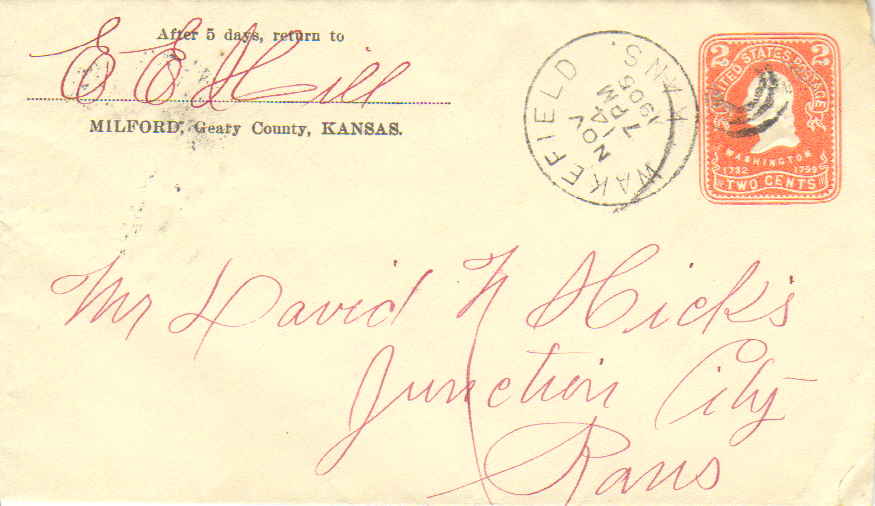 After 5 days, return to
E E Hill
MILFORD, Geary County, KANSAS.
WAKEFIELD KANS.
NOV
14
7 PM
1905
2 UNITED STATES POSTAGE 2
WASHINGTON
1732 1799
TWO CENTS
Mr David N Hicks
Junction City
Kans